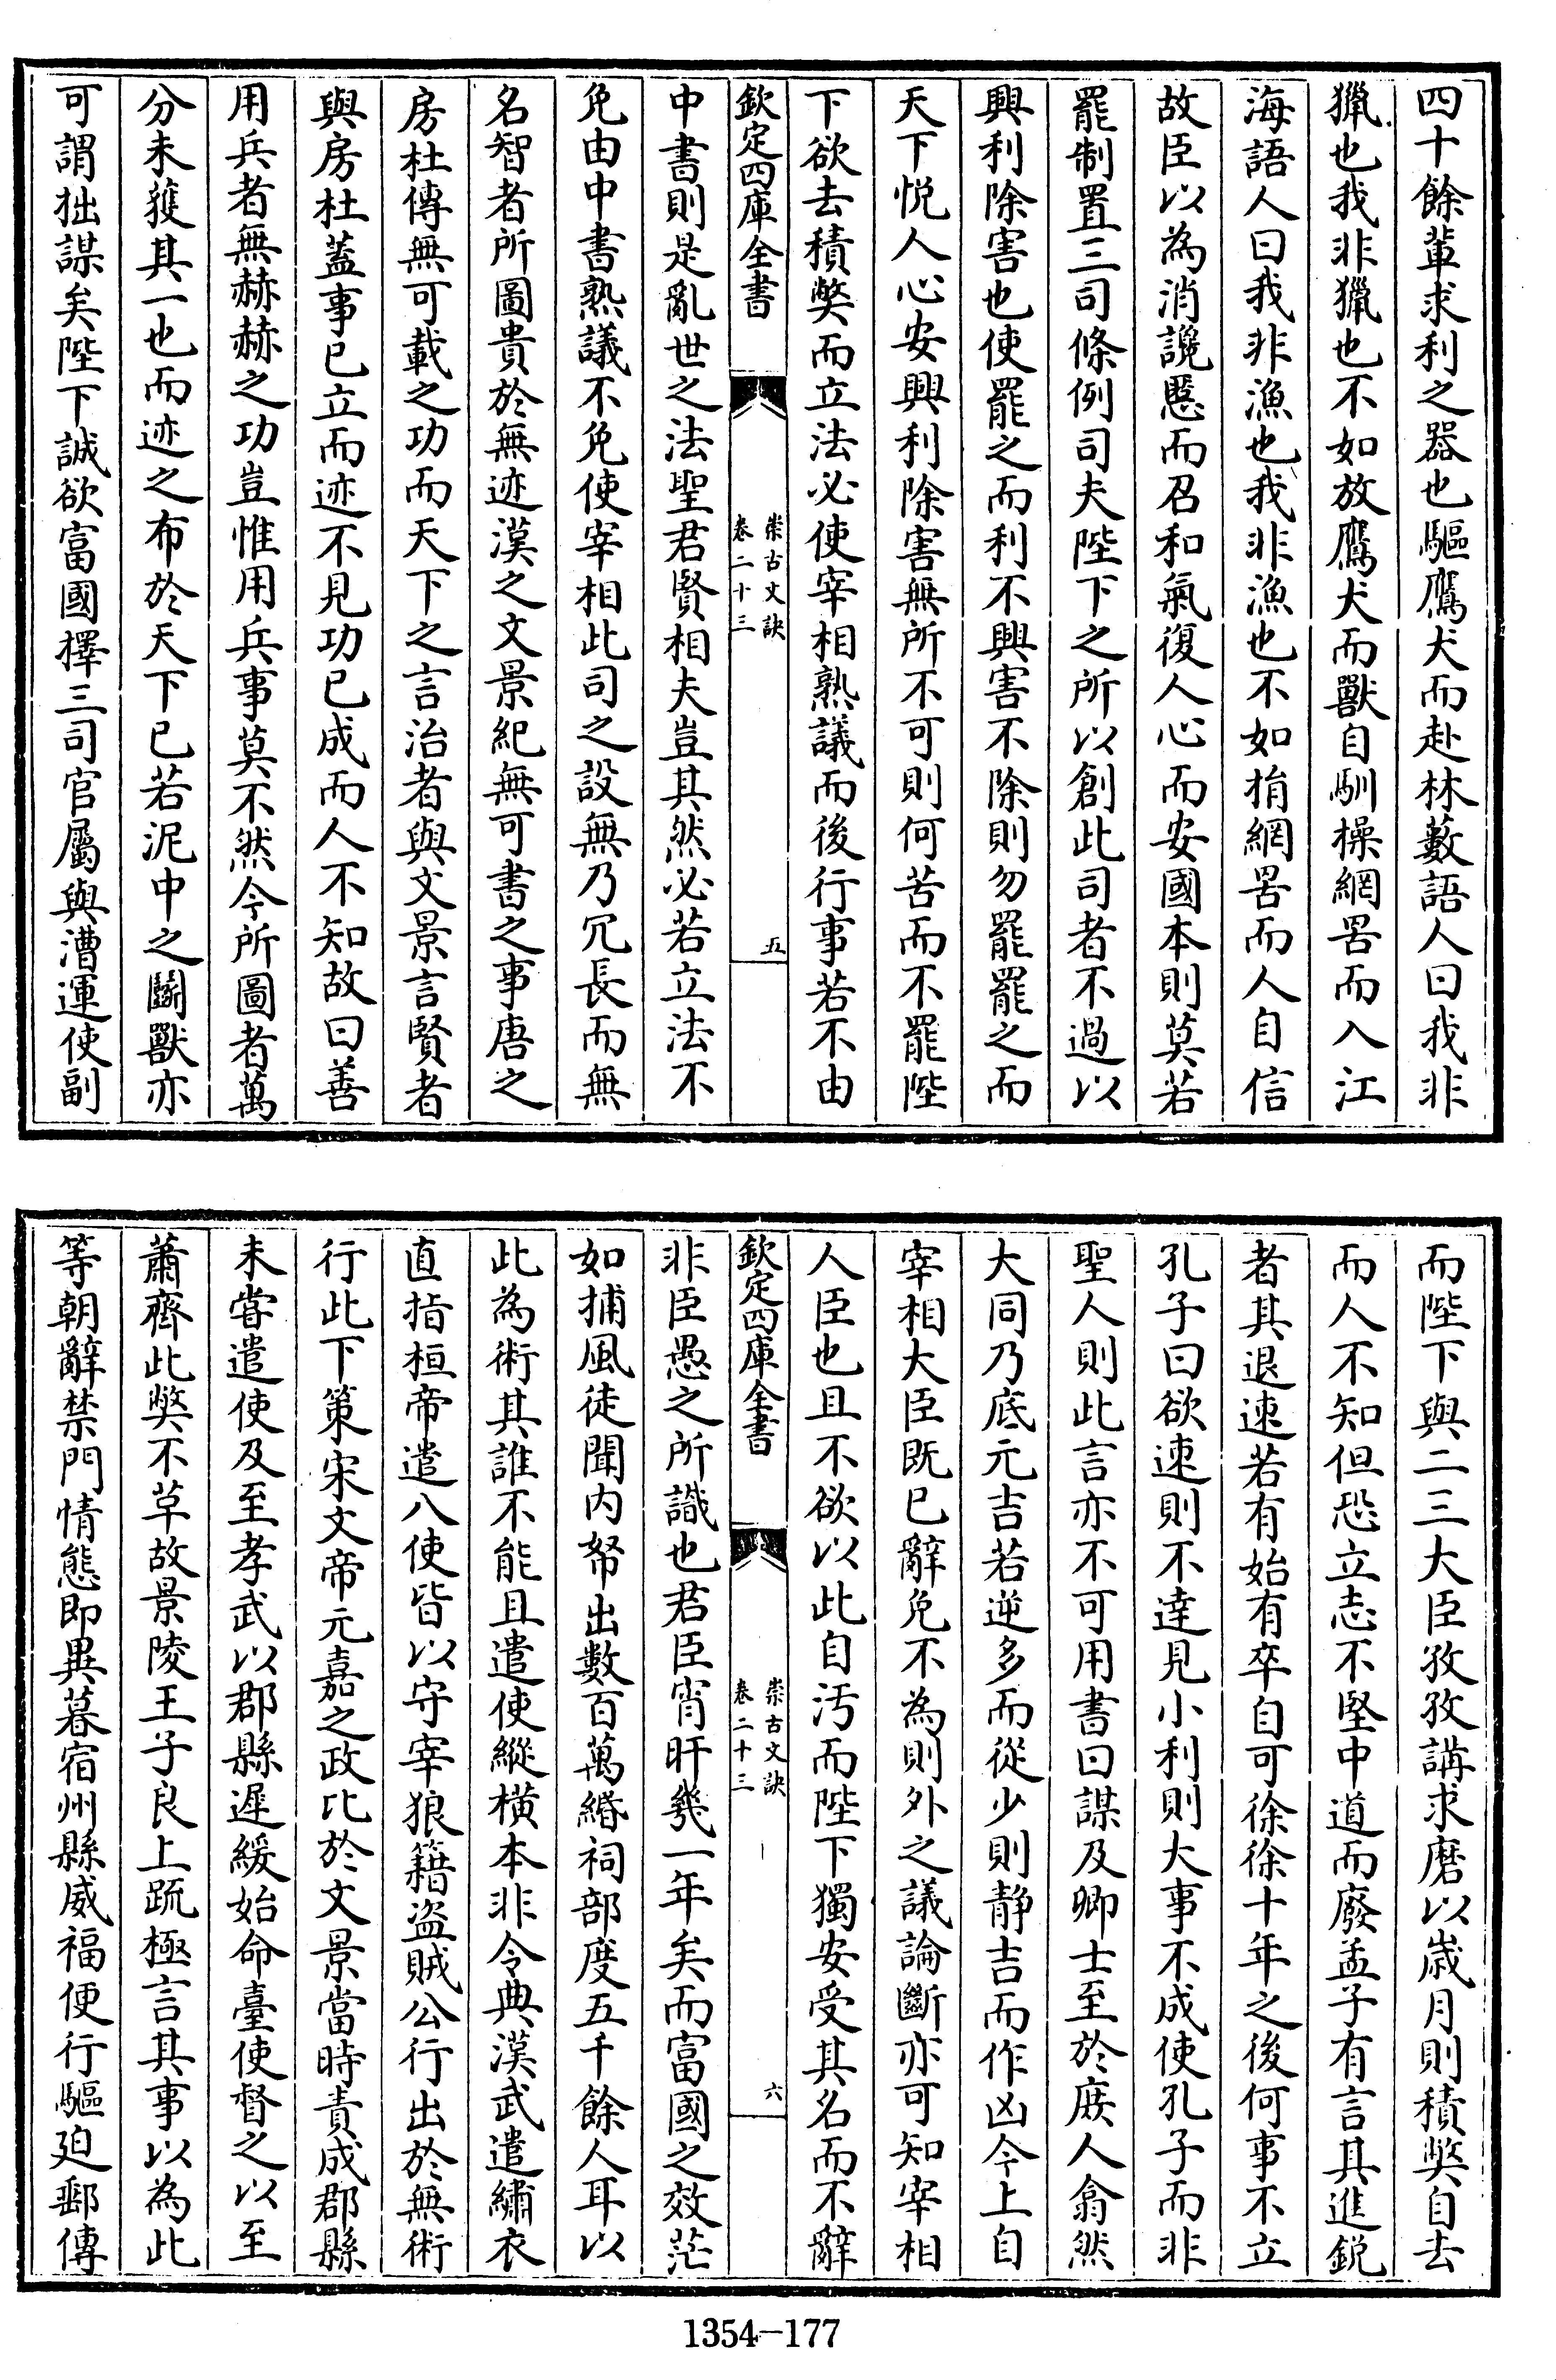 四十餘輩求利之器也驅鷹犬而赴林藪語人曰我非
獵也我非獵也不如放鷹犬而獸自馴操網罟而入江
海語人曰我非漁也我非漁也不如捐網罟而人自信
故臣以為消讒慝而召和氣復人心而安國本則莫若
罷制置三司條例司夫陛下之所以創此司者不過以
興利除害也使罷之而利不興害不除則勿罷罷之而
天下悦人心安興利除害無所不可則何苦而不罷陛
下欲去積弊而立法必使宰相熟議而後行事若不由
欽定四庫全書
崇古文訣
卷二十三
五
中書則是亂世之法聖君賢相夫豈其然必若立法不
免由中書熟議不免使宰相此司之設無乃冗長而無
名智者所圖貴於無迹漢之文景紀無可書之事唐之
房杜傳無可載之功而天下之言治者與文景言賢者
與房杜蓋事已立而迹不見功已成而人不知故曰善
用兵者無赫赫之功豈惟用兵事莫不然今所圖者萬
分未獲其一也而迹之布於天下已若泥中之鬭獸亦
可謂拙謀矣陛下誠欲富國擇三司官屬與漕運使副
而陛下與二三大臣孜孜講求磨以歳月則積弊自去
而人不知但恐立志不堅中道而廢孟子有言其進鋭
者其退速若有始有卒自可徐徐十年之後何事不立
孔子曰欲速則不逹見小利則大事不成使孔子而非
聖人則此言亦不可用書曰謀及卿士至於庶人翕然
大同乃底元吉若逆多而從少則静吉而作凶今上自
宰相大臣既已辭免不為則外之議論斷亦可知宰相
人臣也且不欲以此自汚而陛下獨安受其名而不辭
欽定四庫全書
崇古文訣
卷二十三
六
非臣愚之所識也君臣宵旰幾一年矣而富國之效茫
如捕風徒聞内帑出數百萬緡祠部度五千餘人耳以
此為術其誰不能且遣使縱橫本非令典漢武遣繡衣
直指桓帝遣八使皆以守宰狼籍盗賊公行出於無術
行此下策宋文帝元嘉之政比於文景當時責成郡縣
未嘗遣使及至孝武以郡縣遲緩始命臺使督之以至
蕭齊此弊不革故景陵王子良上疏極言其事以為此
等朝辭禁門情態即異暮宿州縣威福便行驅廹郵傳
1354-177